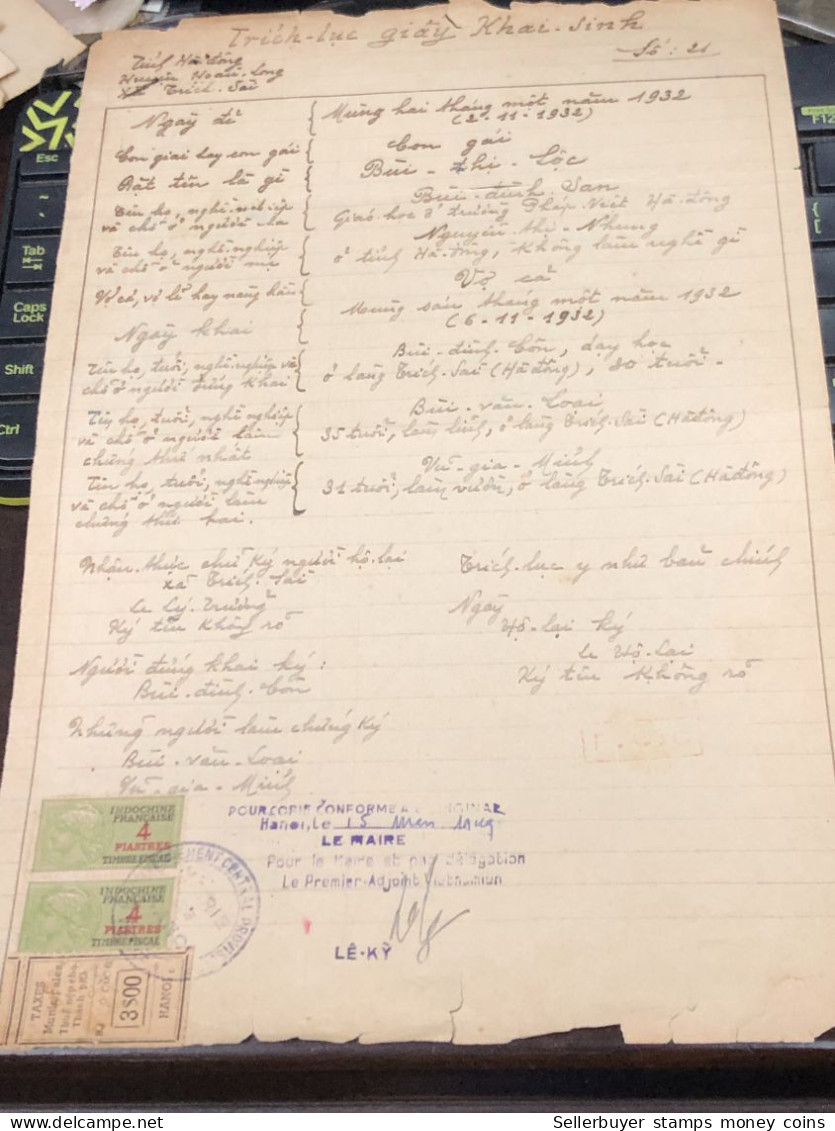 Trích-lục giấy Khai-sinh
Số: 21
Tỉnh Hà đông
Huyện Hoàn-Long
Xã Trích-Sài
Ngày đẻ
Mùng hai tháng một năm 1932
(2-11-1932)
Con giai hay con gái
Con gái
Đặt tên là gì
Bùi-thị-Lộc
Tên họ, nghề-nghiệp
và chỗ ở người cha
Bùi-đình-San
Giáo-học ở trường Pháp Việt Hà-đông
Tên họ, nghề-nghiệp
và chỗ ở người mẹ
Nguyễn-thị-Nhung
ở tỉnh Hà-đông, không làm nghề gì
Vợ cả, vợ lẽ hay nàng hầu
Vợ cả
Ngày khai
Mùng sáu tháng một năm 1932
(6-11-1932)
Tên họ, tuổi, nghề-nghiệp và
chỗ ở người đứng khai
Bùi-đình-Côn, dạy học
ở làng Trích-Sài (Hà đông), 30 tuổi-
Tên họ, tuổi, nghề nghiệp
và chỗ ở người làm
chứng thứ nhất
Bùi-văn-Loai
35 tuổi, làm lính, ở làng Trích-Sài (Hà đông)
Tên họ, tuổi, nghề nghiệp
và chỗ ở người làm
chứng thứ hai.
Vũ-gia-Minh
31 tuổi, làm vườn, ở làng Trích-Sài (Hà đông)
Nhận-thực chữ ký người hộ-lại
xã Trích-Sài
Le Lý-Trưởng
Ký tên không rõ
Trích-lục y như bản chính
Ngày
Hộ-lại ký
Le Hộ-Lại
Ký tên không rõ
Người đứng khai ký:
Bùi-đình-Côn
Những người làm chứng ký
Bùi-văn-Loai
Vũ-gia-Minh
INDOCHINE
FRANÇAISE
4
PIASTRES
TIMBRE FISCAL
INDOCHINE
FRANÇAISE
4
PIASTRES
TIMBRE FISCAL
TAXES
Municipales
Thuế nộp cho
Thành phố
3$00
HANOI
POUR COPIE CONFORME A L'ORIGINAL
Hanoi, Le 15
LE MAIRE
Pour le Maire et par délégation
Le Premier-Adjoint Vietnamien
LÊ-KỲ
Esc
Tab
Caps
Lock
Shift
Ctrl
F12
Sellerbuyer stamps money coins